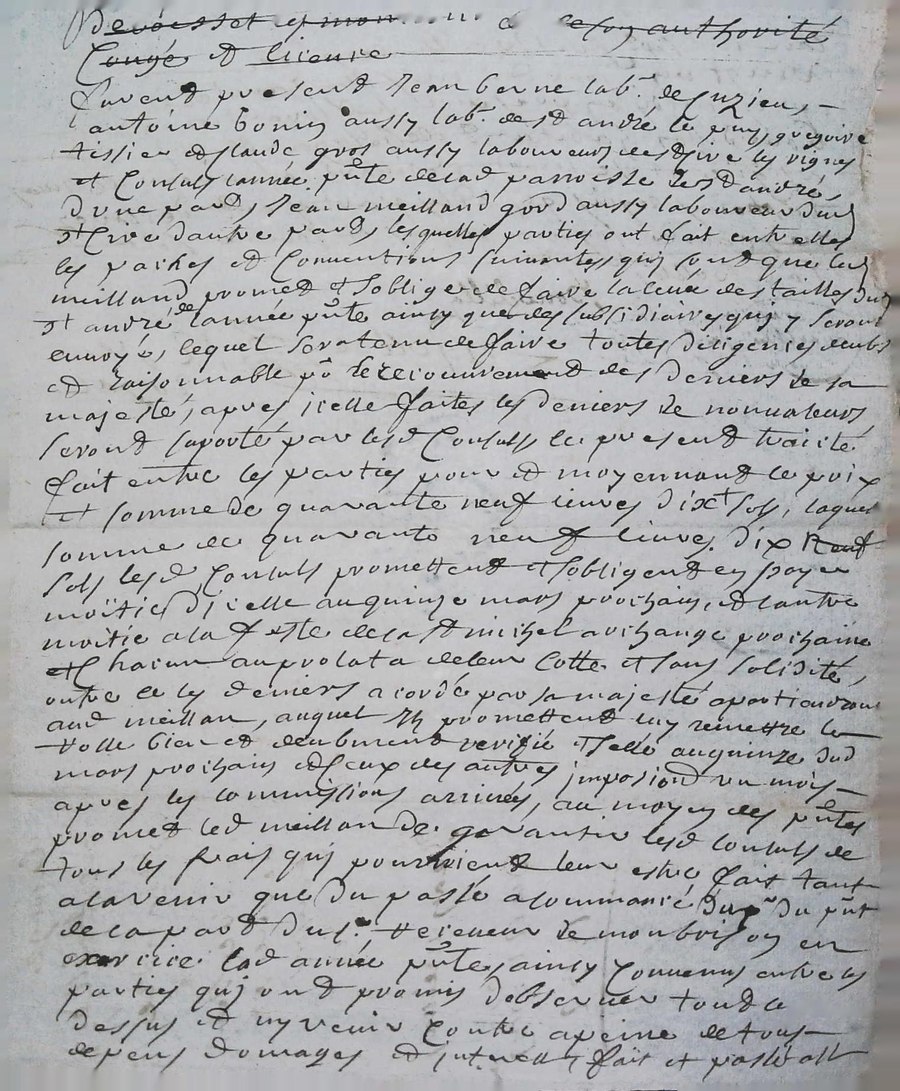 authorité
Congé et licence
furent present Jean berne lab.r de Suzieu,
antoine bonin aussy lab.r de St andré le puy, gregoire
tissier et claude gros aussy laboureurs de St Cire les vignes
et Consuls lannée pnte de lad parroisse de St andré,
dune part, Jean meilland gord aussy laboureur dud
St Cire dautre part, lesquelles parties ont fait entrelles
les paches et Conventions suivantes quj sont que led
meilland promet et soblige de faire la leue des tailles dud
St andré de lannée pnte ainsy que des subsidiaires quj y seront
enuoyé, lequel sera tenu de faire toutes diligences deubs
et raisonnable po le recouurement des deniers de sa
majesté, apres jcelle faites les deniers de nonualeurs
seront suporté par lesd Consuls le present traité
fait entre les parties pour et moyennant le prix
et somme de quarante neuf liures dixt sols, laquel
somme de quarante neuf liures dix neuf
sols lesd Consuls promettent et sobligent en payer
moitie djcelle au quinze mars prochain, et lautre
moitie a la feste de la St michel archange prochaine
et Chacun au prolata de leur Cotte et sans solidité,
outre ce les deniers acordé par sa majesté apartiendront
aud meillan, auquel jls promettent luy remettre le
rolle bien et deubment verifié et sellé au quinze dud
mars prochain et ceux des autres jmposions un mois
apres les commissions arriuées, au moyen des pntes
promet led meillan de garantir lesd consuls de
tous les frais quj pourroient leur estre fait tant
a lavenir que du passé a commancé du pr du pnt
de la part du sr. receueur de montbrison en
exercice lad année pnte, ainsy Convenus entre les
parties quj ont promis dobseruer tout ce
dessus et ny venir Contre a peine de tous
depens domages et jnterests fait et passé